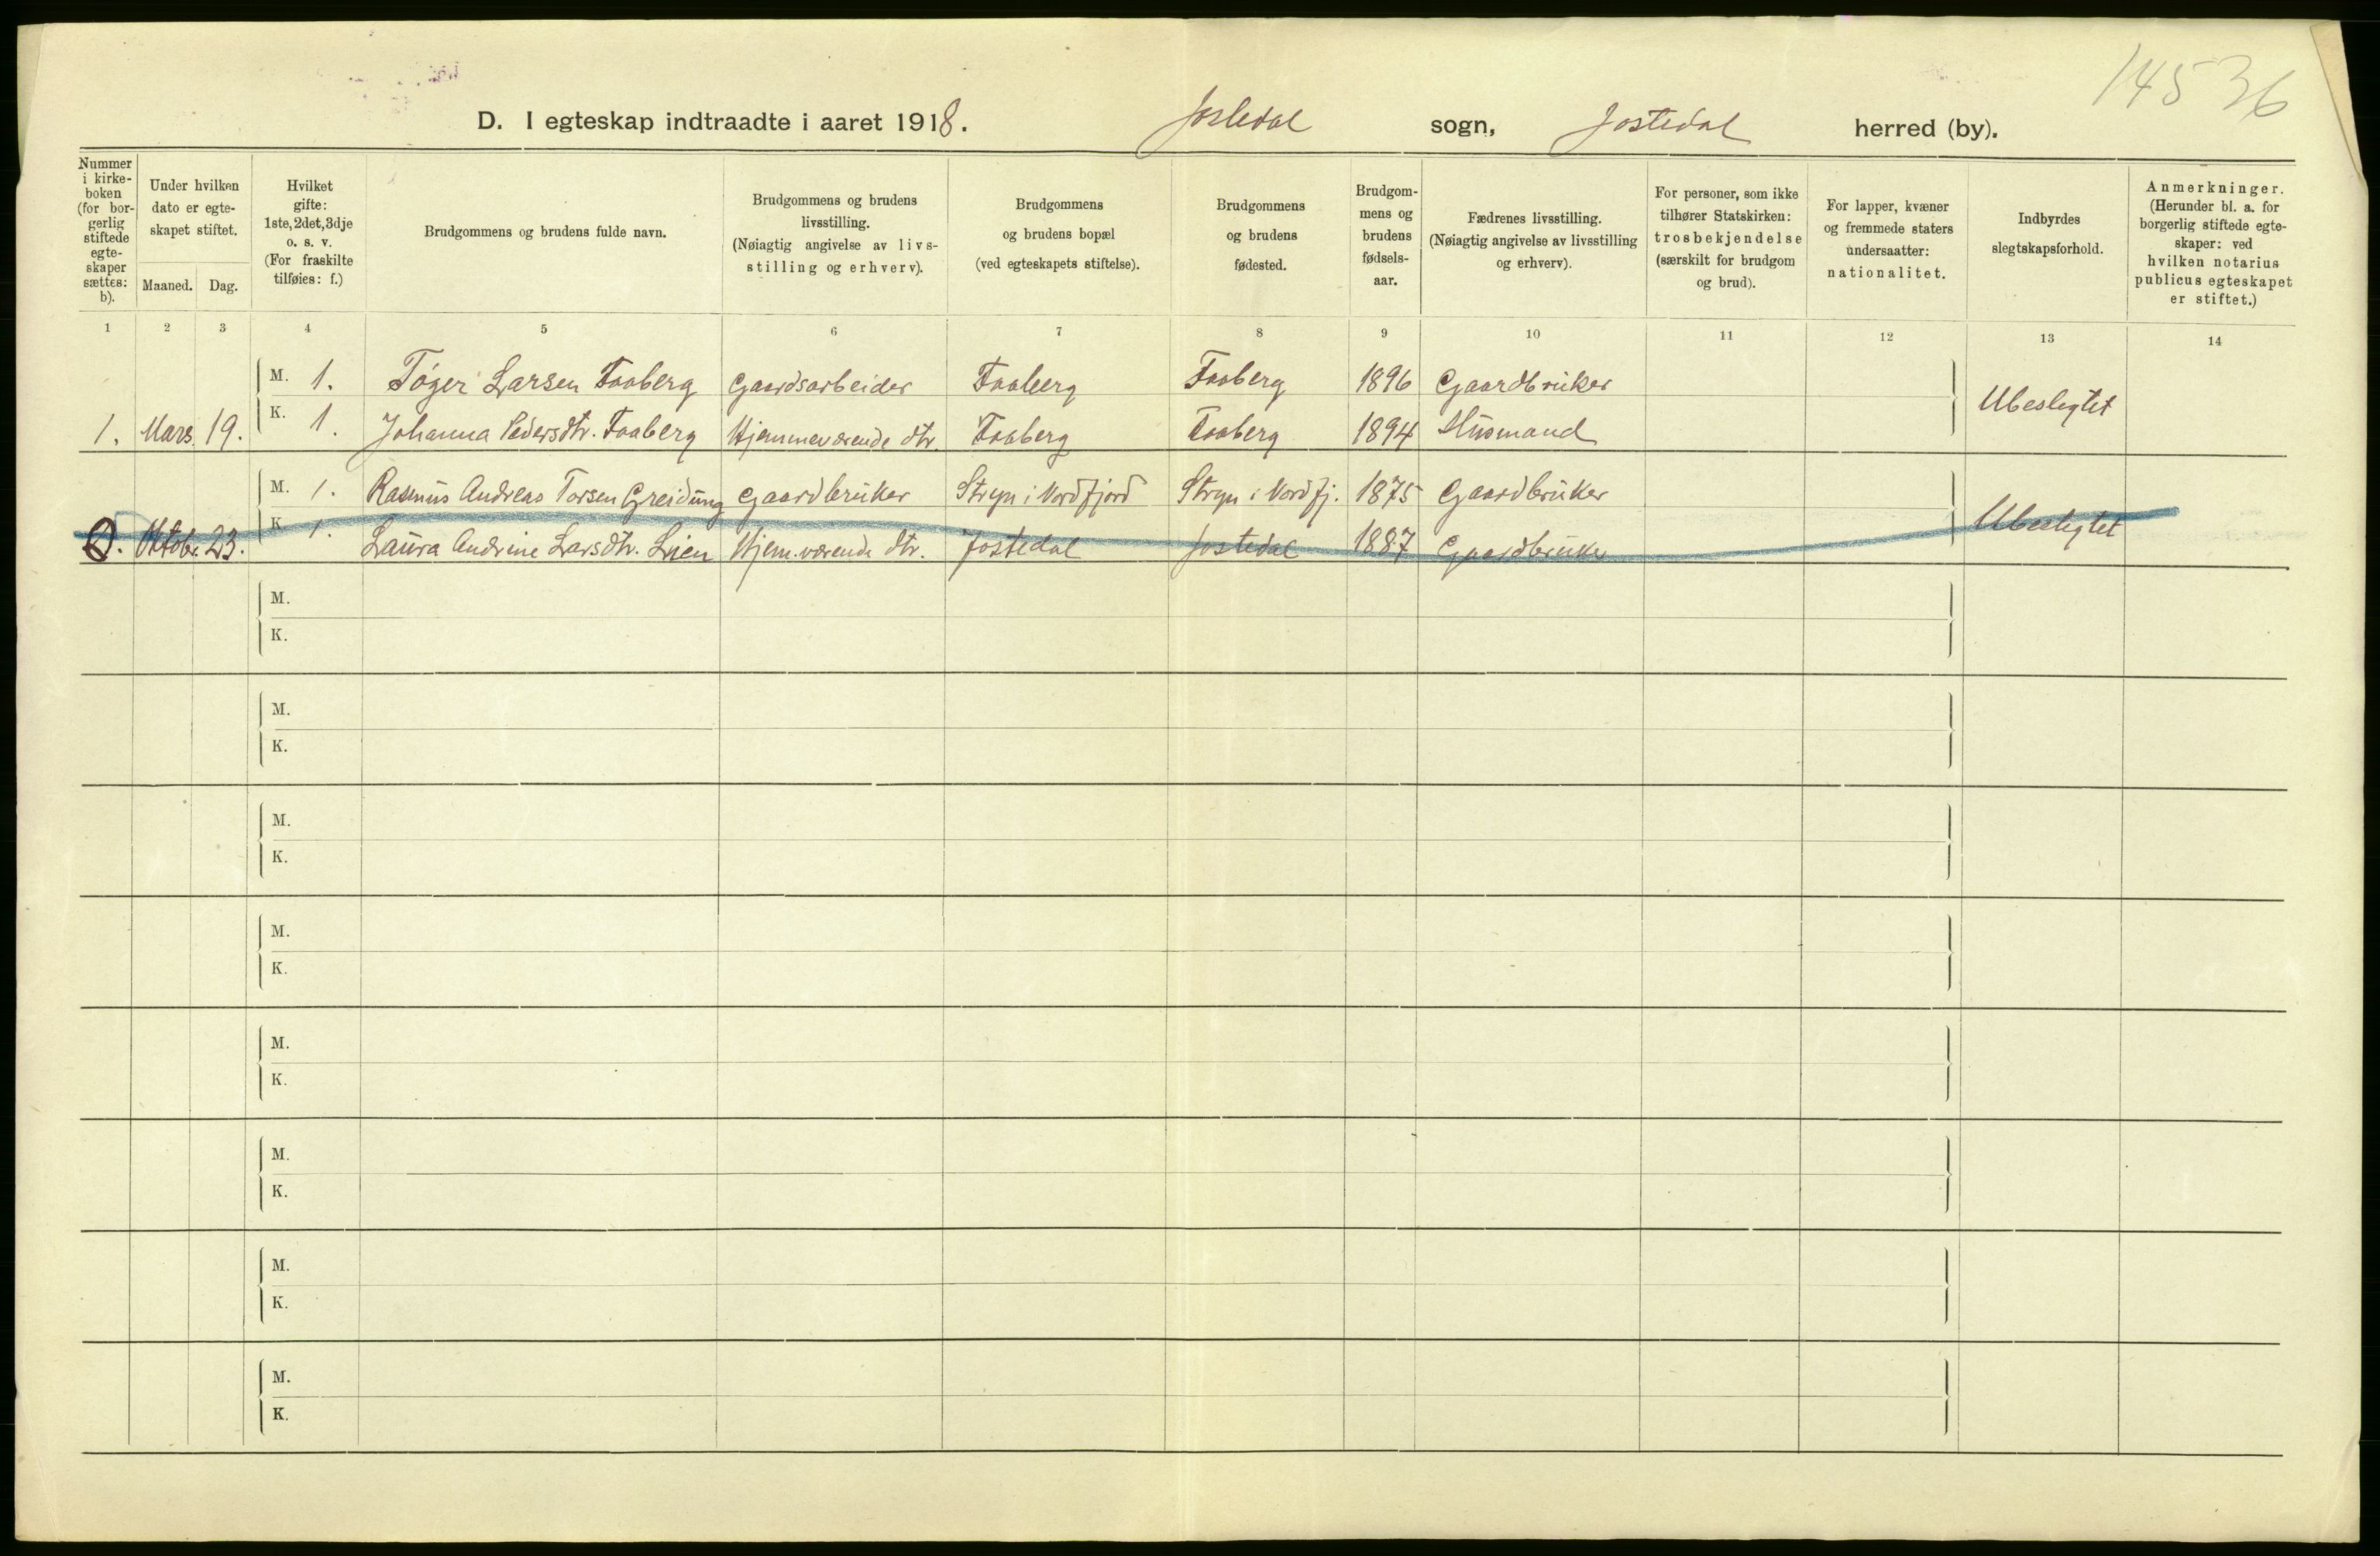 14536
D. I egteskap indtraadte i aaret 1918. Jostedal sogn, Jostedal herred (by).
Nummer i kirke-boken (for bor-gerlig stiftede egte-skaper sættes: b).
Under hvilken dato er egte-skapet stiftet.
Maaned. Dag.
Hvilket gifte: 1ste, 2det, 3dje o. s. v. (For fraskilte tilføies: f.)
Brudgommens og brudens fulde navn.
Brudgommens og brudens livsstilling. (Nøiagtig angivelse av livs-stilling og erhverv).
Brudgommens og brudens bopæl (ved egteskapets stiftelse).
Brudgommens og brudens fødested.
Brudgom-mens og brudens fødsels-aar.
Fædrenes livsstilling. (Nøiagtig angivelse av livsstilling og erhverv).
For personer, som ikke tilhører Statskirken: trosbekjendelse (særskilt for brudgom og brud).
For lapper, kvæner og fremmede staters undersaatter: nationalitet.
Indbyrdes slegtskapsforhold.
Anmerkninger. (Herunder bl. a. for borgerlig stiftede egte-skaper: ved hvilken notarius publicus egteskapet er stiftet.)
1 2 3 4 5 6 7 8 9 10 11 12 13 14
M. 1. Tøger Larsen Faaberg Gaardsarbeider Faaberg Faaberg 1896 Gaardbruker
Ubeslegtet
1. Mars 19. K. 1. Johanna Pedersdtr. Faaberg Hjemmeværende dtr. Faaberg Faaberg 1894 Husmand
M. 1. Rasmus Andreas Torsen Greidung Gaardbruker Stryn i Nordfjord Stryn i Nordfj. 1875 Gaardbruker
Ubeslegtet
2. Oktobr. 23. K. 1. Laura Andrine Larsdtr. Lien Hjem.værende dtr. Jostedal Jostedal 1887 Gaardbruker
M.
K.
M.
K.
M.
K.
M.
K.
M.
K.
M.
K.
M.
K.
M.
K.